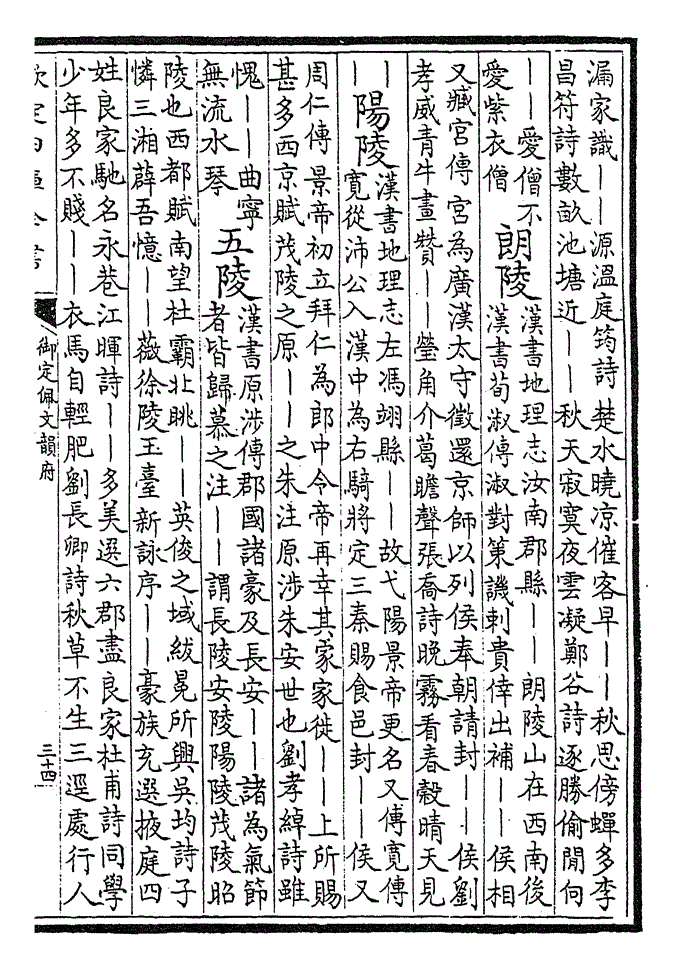 漏家識丨丨源溫庭筠詩楚水曉凉催客早丨丨秋思傍蟬多李
昌符詩數畝池塘近丨丨秋天寂寞夜雲凝鄭谷詩逐勝偷閒向
丨丨愛僧不
愛紫衣僧
朗陵
漢書地理志汝南郡縣丨丨朗陵山在西南後
漢書荀淑傳淑對策譏刺貴倖出補丨丨侯相
又臧宮傳宮為廣漢太守徵還京師以列侯奉朝請封丨丨侯劉
孝威青牛畫贊丨丨瑩角介葛瞻聲張喬詩晚霧看春轂晴天見
丨
丨
陽陵
漢書地理志左馮翊縣丨丨故弋陽景帝更名又傅寬傳
寬從沛公入漢中為右騎將定三秦賜食邑封丨丨侯又
周仁傳景帝初立拜仁為郎中令帝再幸其家家徙丨丨上所賜
甚多西京賦茂陵之原丨丨之朱注原涉朱安世也劉孝綽詩雖
愧丨丨曲寧
無流水琴
五陵
漢書原涉傳郡國諸豪及長安丨丨諸為氣節
者皆歸慕之注丨丨謂長陵安陵陽陵茂陵昭
陵也西都賦南望杜霸北眺丨丨英俊之域紱冕所興吳均詩子
憐三湘薜吾憶丨丨薇徐陵玉臺新詠序丨丨豪族充選掖庭四
姓良家馳名永巷江暉詩丨丨多美選六郡盡良家杜甫詩同學
少年多不賤丨丨衣馬自輕肥劉長卿詩秋草不生三逕處行人
欽定四庫全書
御定佩文韻府
三十四